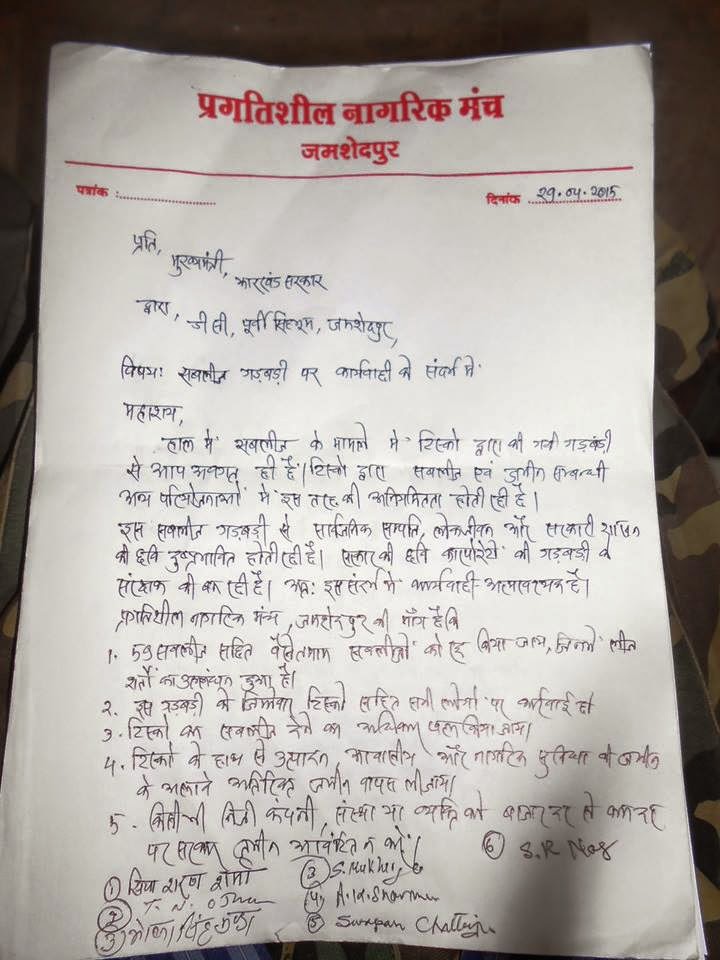 प्रगतिशील नागरिक मंच
जमशेदपुर
पत्रांक :.................... दिनांक 29.04.2015
प्रति,
मुख्यमंत्री,
झारखंड सरकार
द्वारा,
डी सी, पूर्वी सिंहभूम, जमशेदपुर,
विषय: सबलीज गड़बड़ी पर कार्यवाही के संदर्भ में
महाशय,
हाल में सबलीज के मामले में टिस्को द्वारा की गयी गड़बड़ी
से आप अवगत ही हैं। टिस्को द्वारा सबलीज एवं जमीन सम्बन्धी
अन्य परियोजनाओं में इस तरह की अनियमितता होती रही है।
इस सबलीज गड़बड़ी से सार्वजनिक सम्पति, लोकजीवन और सरकारी
की छवि दुष्प्रभावित होती रही है। सरकार की छवि कारपोरेटों की गड़बड़ी के
संरक्षक की बन रही है। अत: इस संदर्भ में कार्यवाही अत्यावश्यक है।
प्रगतिशील नागरिक मंच, जमशेदपुर की माँग है कि
1. 59 सबलीज सहित वैसे तमाम सबलीजों को रद्द किया जाय, जिनमें लीज
शर्तों का उल्लंघन हुआ है।
2. इस गड़बड़ी के जिम्मेवार टिस्को सहित सभी लोगों पर कार्रवाई हो
3. टिस्को का सबलीज देने का अधिकार खत्म किया जाय।
4. टिस्को के हाथ से उत्पादन, आवासीय और नागरिक सुविधा की जमीन
के अलावे अतिरिक्त जमीन वापस ली जाय।
5. किसी भी निजी कंपनी, संस्था या व्यक्ति को बाजार दर से कम दर
पर सरकार जमीन आवंटित न करे।
⑥ S.R Nag
① शरण शर्मा
③ S. Mukherj
② T. N. Ojha
④ A.K. Sharma
③ सिंह
⑤ Swapan Chatterje